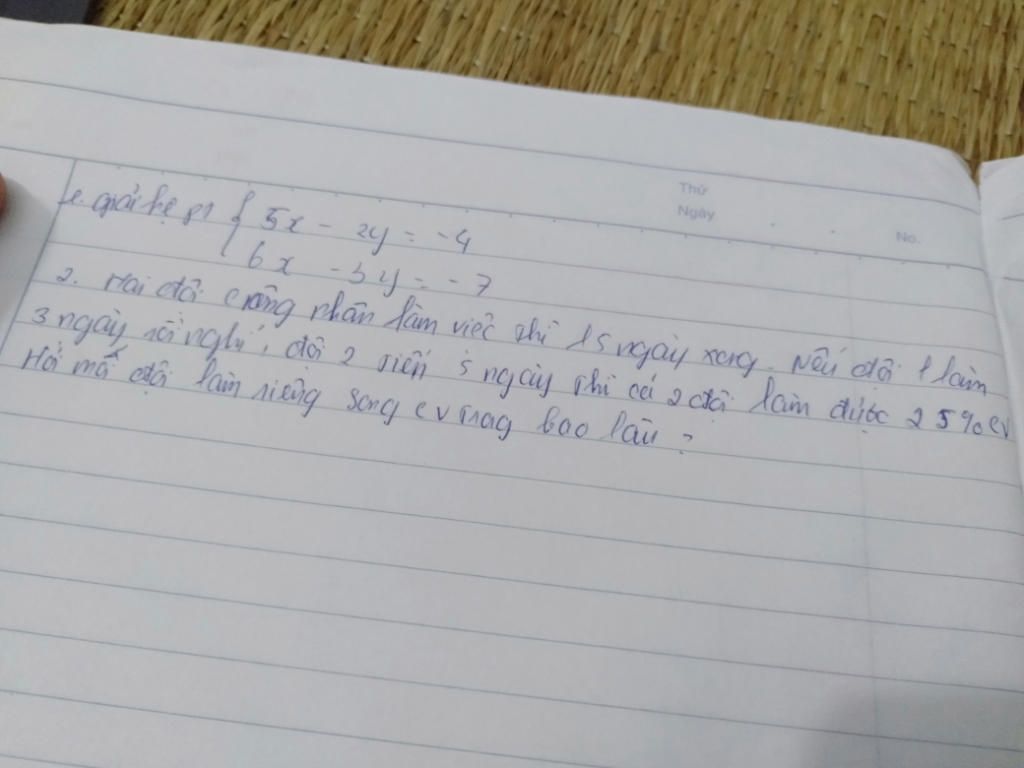 Thứ
Ngày
No.
1. giải hệ pt { 5x - 2y = -4
6x - 3y = -7
2. Hai đội công nhân làm việc thì 15 ngày xong. Nếu đội 1 làm
3 ngày rồi nghỉ, đội 2 tiếp 5 ngày thì cả 2 đội làm được 25% cv
Hỏi mỗi đội làm riêng song cv trong bao lâu ?